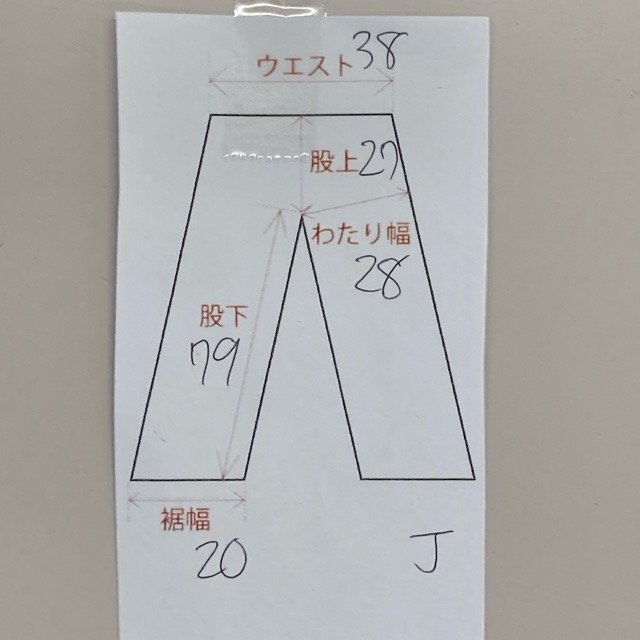 ウエスト 38
股上 27
わたり幅
28
股下
79
裾幅
20
J